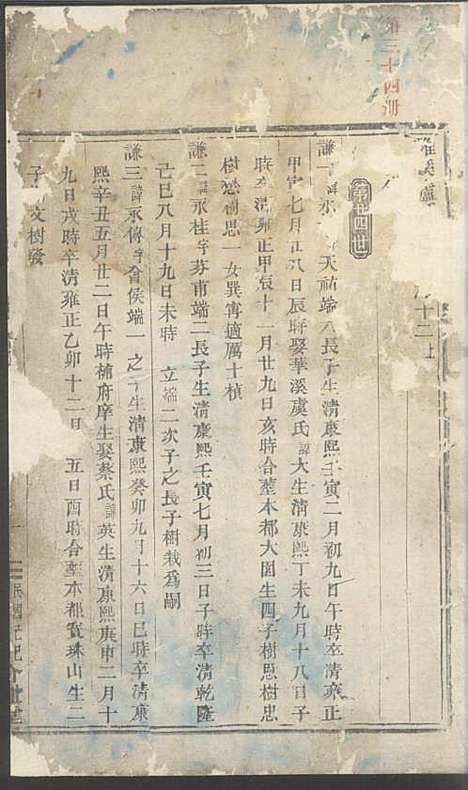 第三十四册
十二上
謙一諱永 天祐端八長子生清康熙壬寅二月初九日午時卒清雍正
甲寅七月廿八日辰時娶華溪虞氏諱大生清康熙丁未九月十八日子
時卒清雍正甲辰十一月廿九日亥時合塟本都大園生四子樹恩樹忠
樹愻樹思一女巽寗適厲士楨
謙二諱永桂字芬甫端二長子生清康熙壬寅七月初三日子時卒清乾隆
己巳八月十九日未時 立端二次子之長子樹栽為嗣
謙三諱永傳字會侯端一之子生清康熙癸卯九月十六日巳時卒清康
熙辛丑五月廿二日午時補府庠生娶蔡氏諱英生清康熙庚申二月十
九日戌時卒清雍正乙卯十二月 五日酉時合塟本都寶珠山生二
子 文樹發